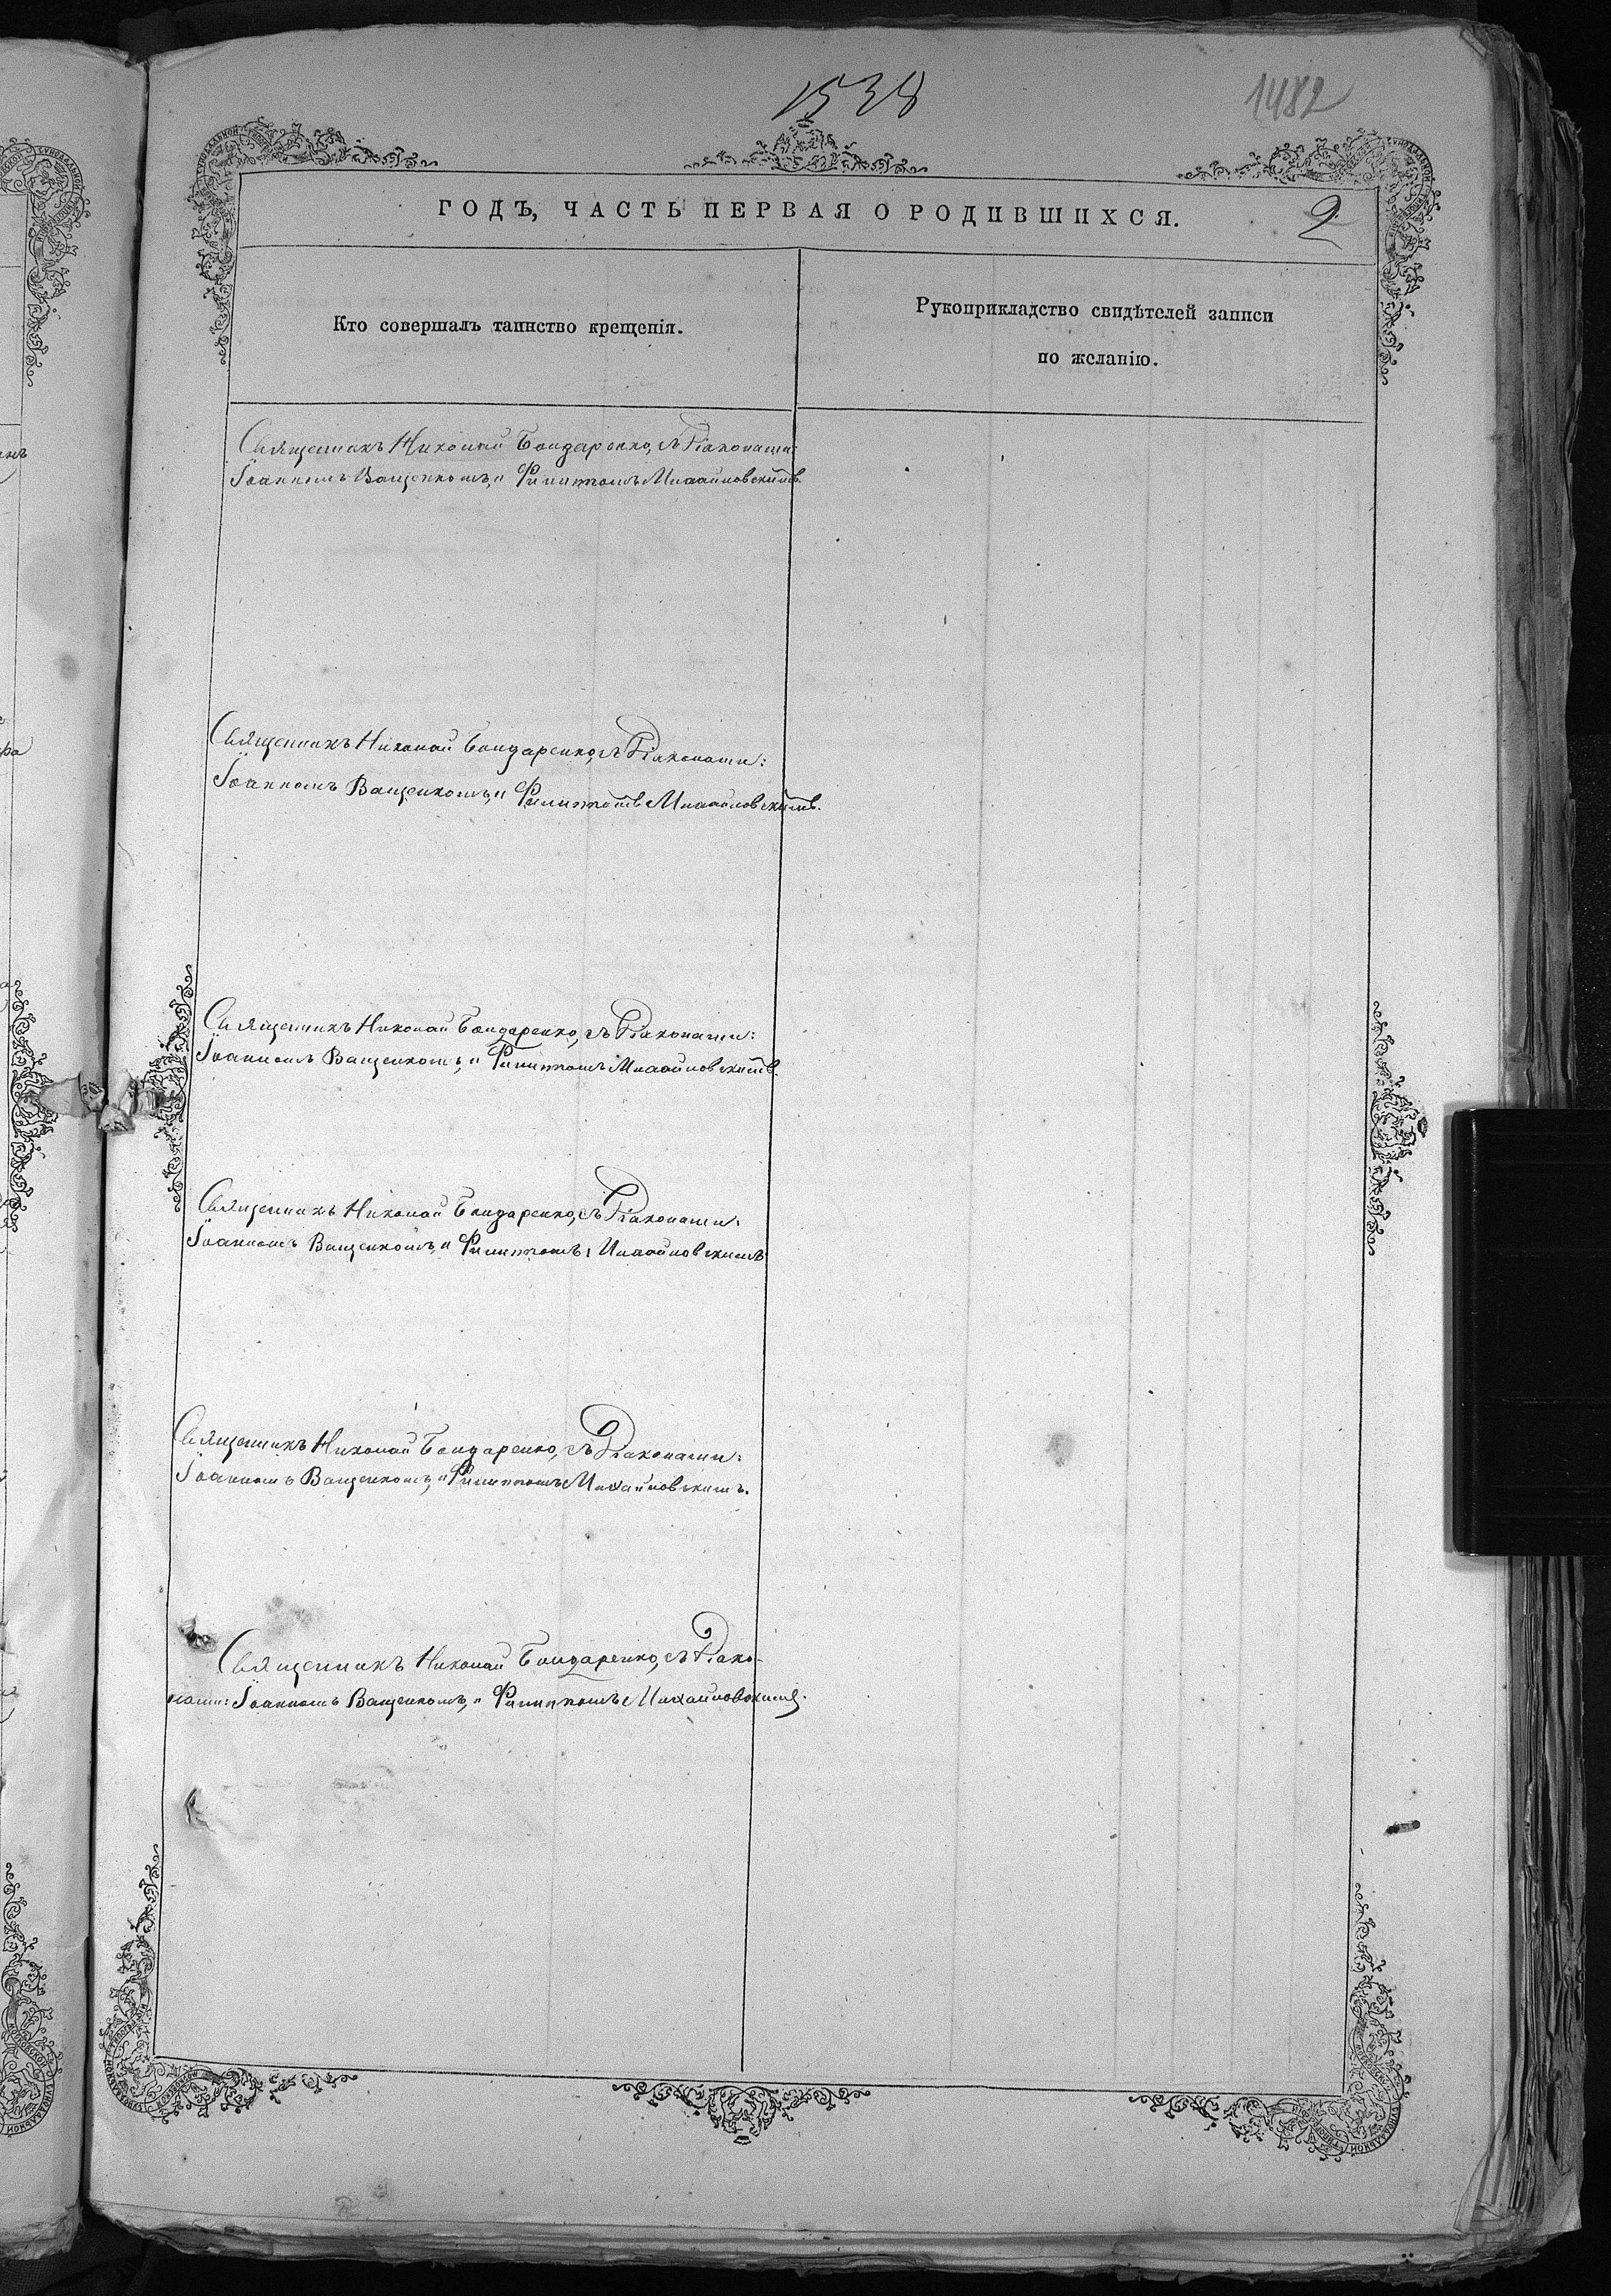 1538
1482
ГОДЪ, ЧАСТЬ ПЕРВАЯ О РОДИВШИХСЯ.
2
Кто совершалъ таинство крещенія.
Рукоприкладство свидѣтелей записи
по желанію.
Священникъ Николай Бондаренко, съ Діаконами:
Іоанномъ Ващенкомъ, и Филиппомъ Михайловскимъ.
Священникъ Николай Бондаренко, съ Діаконами:
Іоанномъ Ващенкомъ, и Филиппомъ Михайловскимъ.
Священникъ Николай Бондаренко, съ Діаконами:
Іоанномъ Ващенкомъ, и Филиппомъ Михайловскимъ.
Священникъ Николай Бондаренко, съ Діаконами:
Іоанномъ Ващенкомъ, и Филиппомъ Михайловскимъ
Священникъ Николай Бондаренко, съ Діаконами:
Іоанномъ Ващенкомъ, и Филиппомъ Михайловскимъ.
Священникъ Николай Бондаренко, съ Діако-
нами: Іоанномъ Ващенкомъ, и Филиппомъ Михайловскимъ.